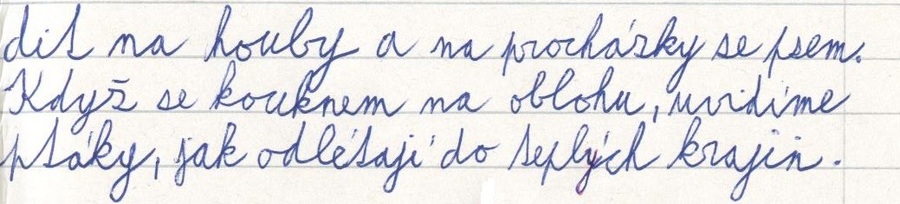 dit na houby a na procházky se psem.
Když se kouknem na oblohu, uvidíme
ptáky, jak odlétají do teplých krajin.